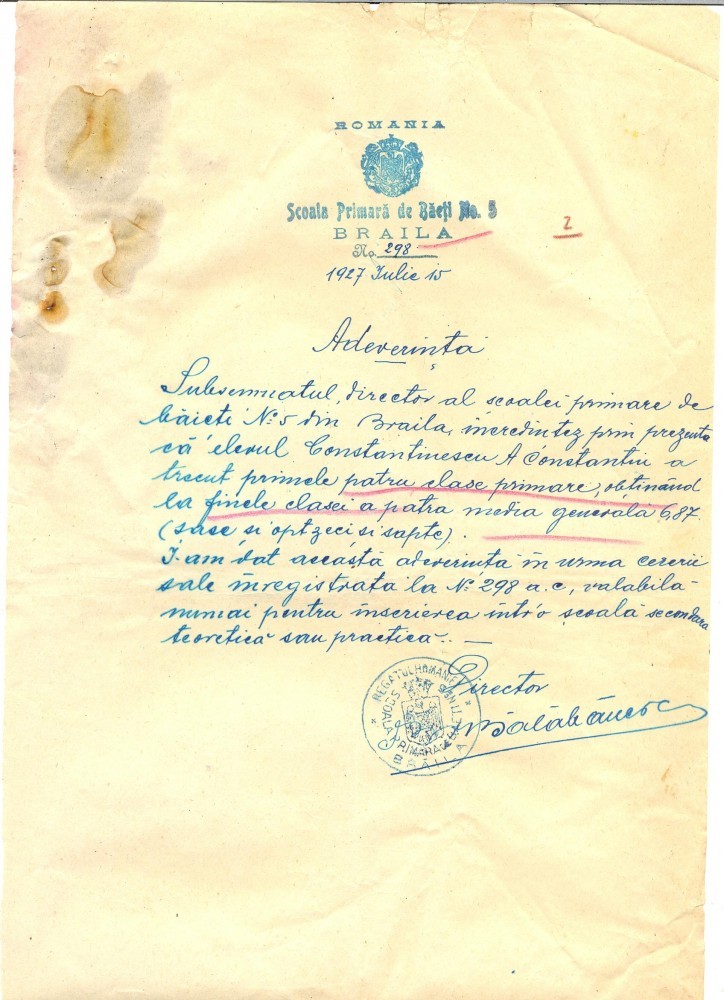 ROMANIA
Scoala Primară de Băeți No. 5
BRAILA
No. 298
1927 Iulie 15
2
Adeverința
Subsemnatul, director al scoalei primare de
băieti No 5 din Braila, incredintez prin prezenta
că elevul Constantinescu A Constantin a
trecut primele patru clase primare, obținând
la finele clasei a patra media generală 6,87
(sase si optzeci si sapte).
I-am dat această adeverință în urma cererii
sale înregistrata la No 298 a.c, valabilă
numai pentru inscrierea intr'o școală secondara
teoretică sau practică. —
Director
Bălăbănescu
REGATUL ROMANIEI
SCOALA PRIMARA DE BAETI No 5
BRĂILA